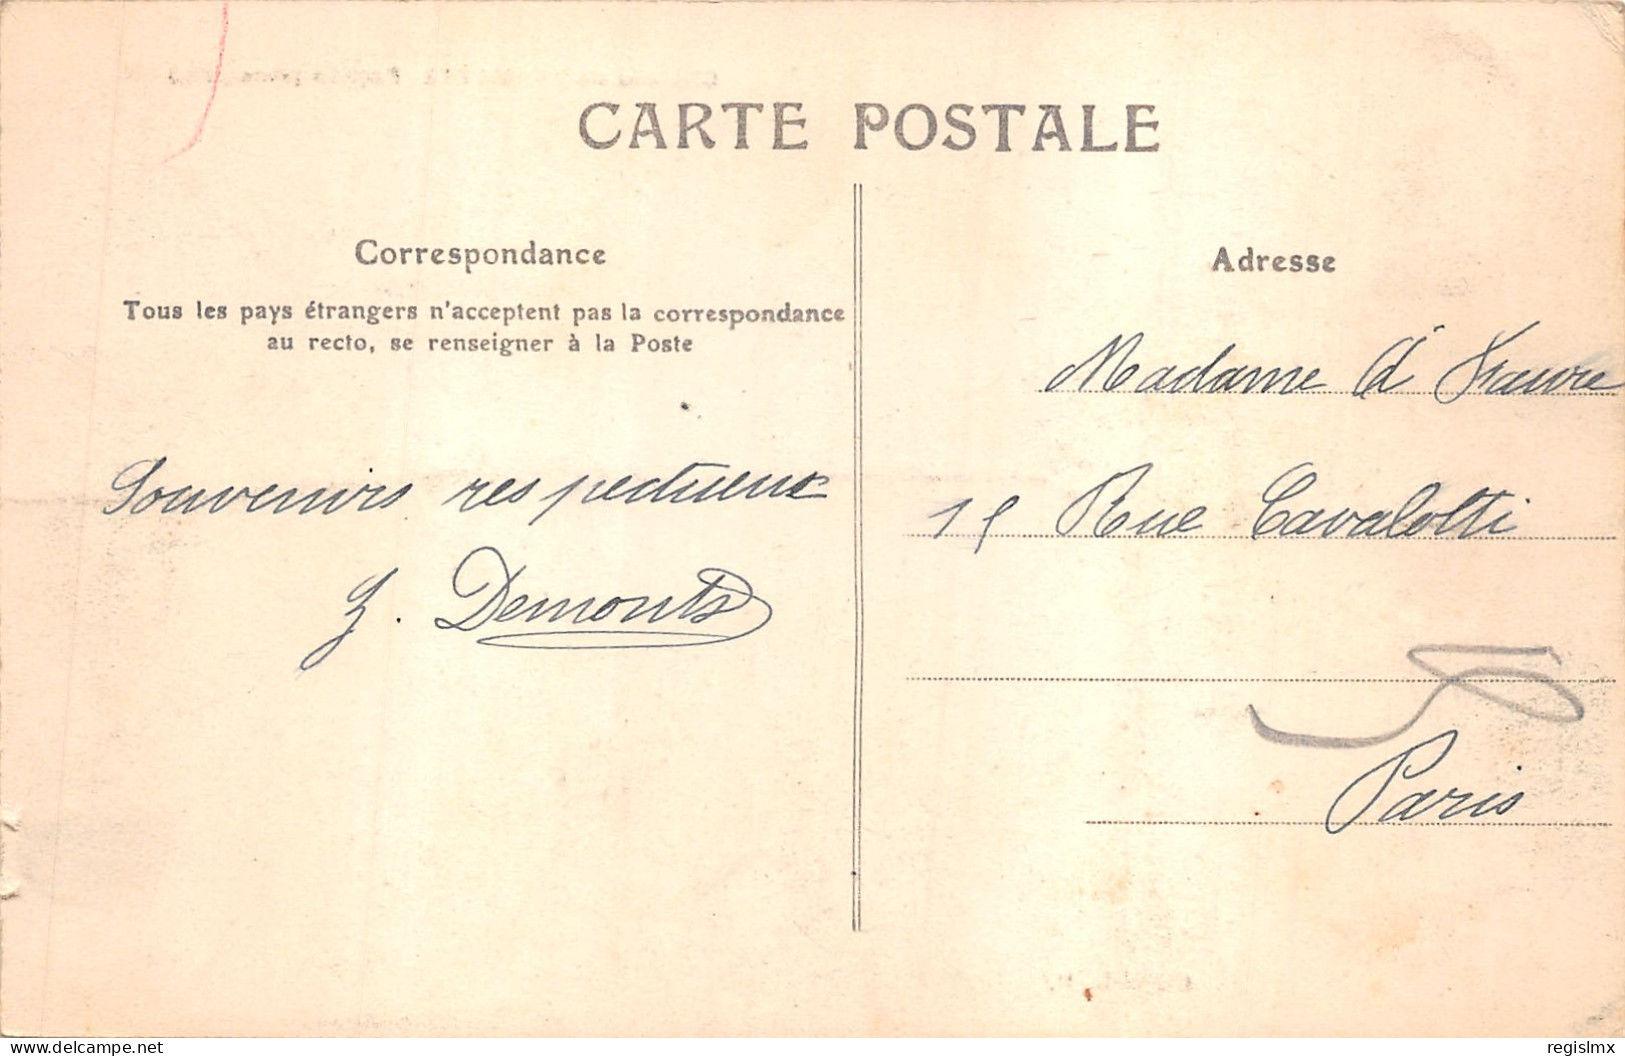 CARTE POSTALE
Correspondance
Tous les pays étrangers n'acceptent pas la correspondance
au recto, se renseigner à la Poste
Souvenirs respectueux
Demonts
Adresse
Madame d' Faure
15 Rue Cavalotti
Paris
delcampe.net
regislmx